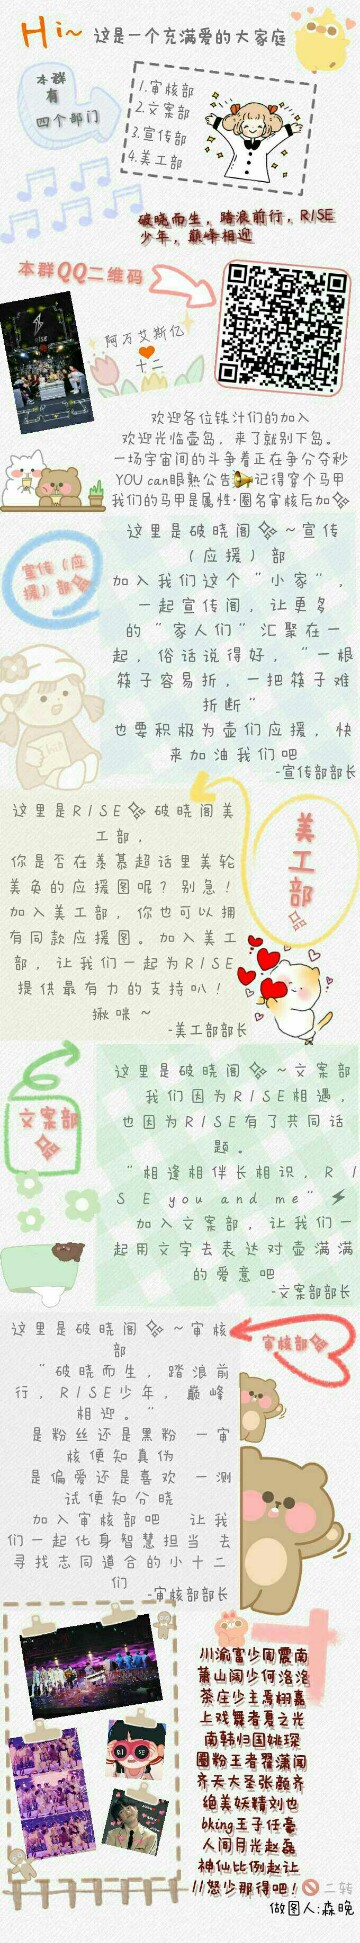 Hi~ 这是一个充满爱的大家庭
本群
有
四个部门
1.审核部
2.文案部
3.宣传部
4.美工部
破晓而生，踏浪前行，R1SE
少年，巅峰相迎
本群QQ二维码
R1SE
阿万艾斯亿
十二
欢迎各位铁汁们的加入
欢迎光临壹岛，来了就别下岛。
一场宇宙间的斗争着正在争分夺秒
YOU can眼熟公告📢记得穿个马甲
我们的马甲是属性·圈名审核后加
宣传（应
援）部
这里是破晓阁~宣传
（应援）部
加入我们这个“小家”，
一起宣传阁，让更多
的“家人们”汇聚在一
起，俗话说得好，“一根
筷子容易折，一把筷子难
折断“
也要积极为壶们应援，快
来加油我们吧
-宣传部部长
美
工
部
这里是R1SE破晓阁美
工部，
你是否在羡慕超话里美轮
美奂的应援图呢？别急！
加入美工部，你也可以拥
有同款应援图。加入美工
部，让我们一起为R1SE
提供最有力的支持叭！
揪咪~
-美工部部长
文案部
这里是破晓阁~文案部
我们因为R1SE相遇，
也因为R1SE有了共同话
题。
“相逢相伴长相识，R1
SE you and me”⚡
加入文案部，让我们一
起用文字去表达对壶满满
的爱意吧
-文案部部长
审核部
这里是破晓阁~审核
部
“破晓而生，踏浪前
行，R1SE少年，巅峰
相迎。”
是粉丝还是黑粉 一审
核便知真伪
是偏爱还是喜欢 一测
试便知分晓
加入审核部吧 让我
们一起化身智慧担当 去
寻找志同道合的小十二
们
-审核部部长
川渝富少周震南
萧山阔少何洛洛
茶庄少主焉栩嘉
上戏舞者夏之光
南韩归国姚琛
圈粉王者翟潇闻
齐天大圣张颜齐
绝美妖精刘也
bking王子任豪
人间月光赵磊
神仙比例赵让
11怒少那得吧！🚫二转
做图人:森晚